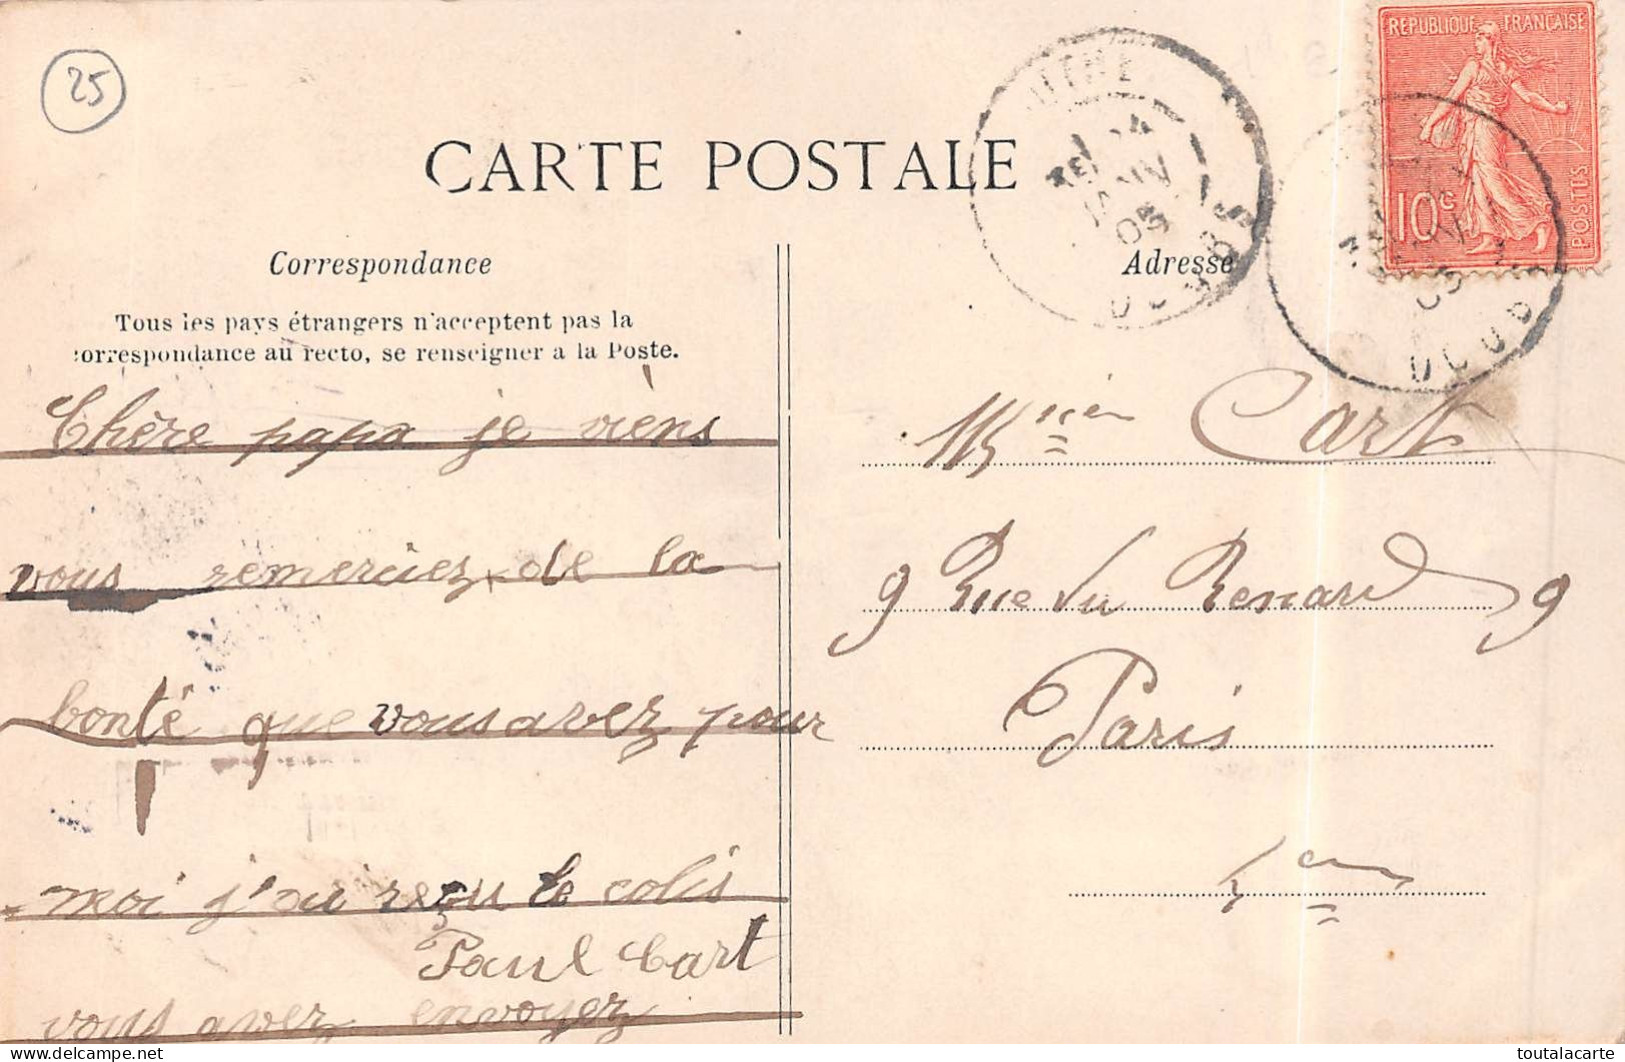 25
REPUBLIQUE FRANÇAISE
10c
POSTES
CARTE POSTALE
DOUBS
05
DOUBS
Correspondance
Adresse
Tous les pays étrangers n'acceptent pas la
correspondance au recto, se renseigner a la Poste.
Chère papa je viens
vous remerciez de la
bonté que vous avez pour
moi j'ai reçu le colis
Paul Cart
vous avez envoyez
Cart
9 Rue du Renard 9
Paris
toutalacarte